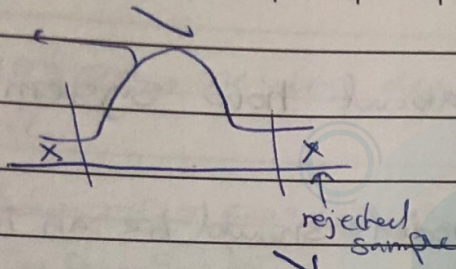 X
X
rejected
sample